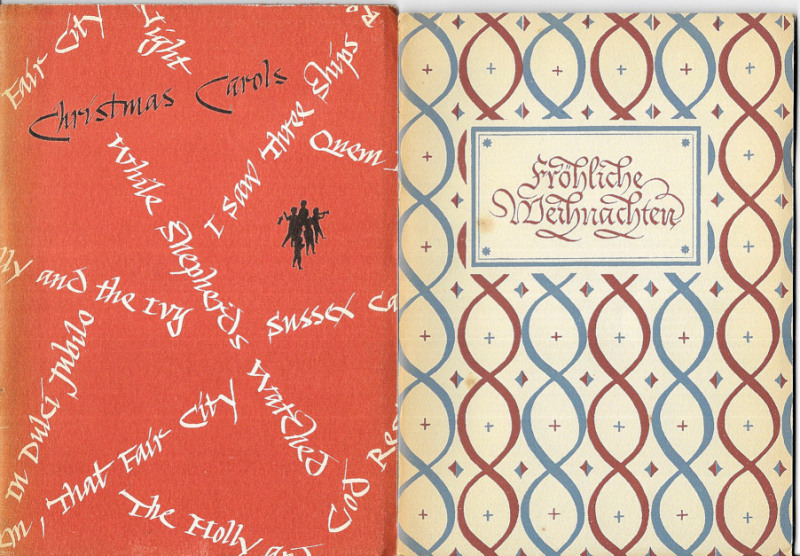 Fair City
Night
Ro
Christmas Carols
I saw Three Ships
Quem
While Shepherds Watched
lly and the Ivy
Sussex Ca
In Dulci Jubilo
m, That Fair City
God Res
The Holly an
Fröhliche
Weihnachten